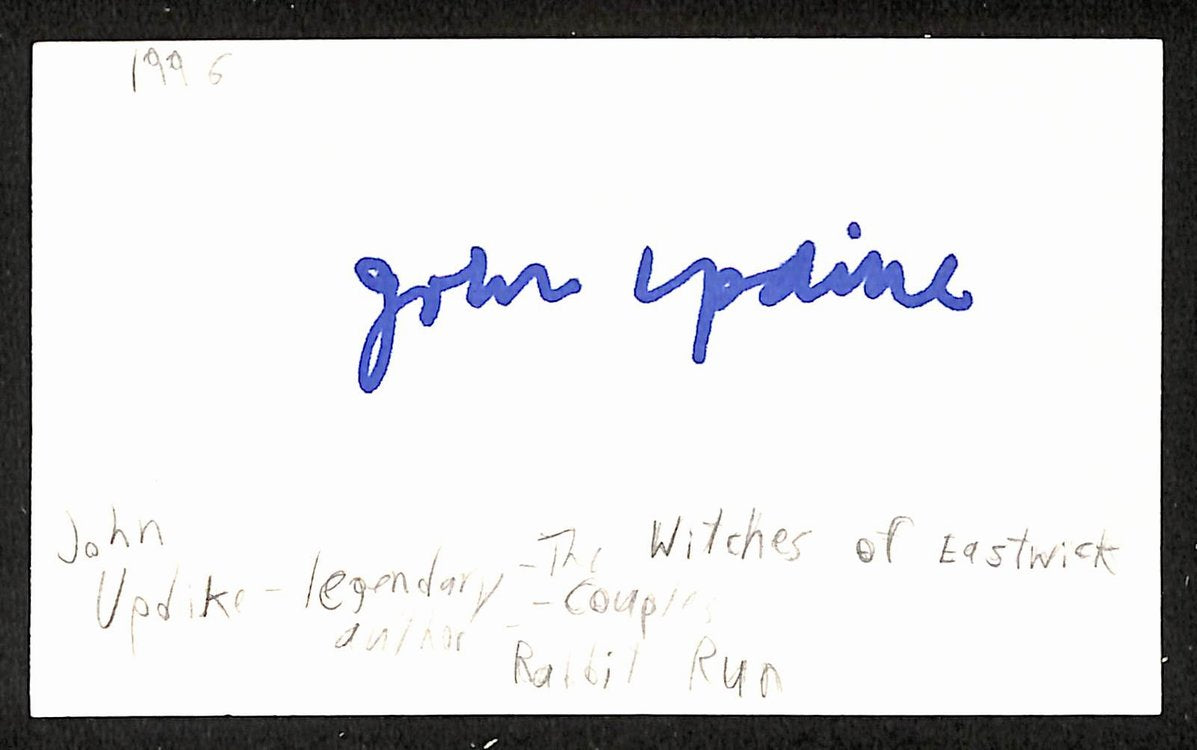 1996
John Updike
John
Updike - legendary - The Witches of Eastwick
author - Couples
- Rabbit Run